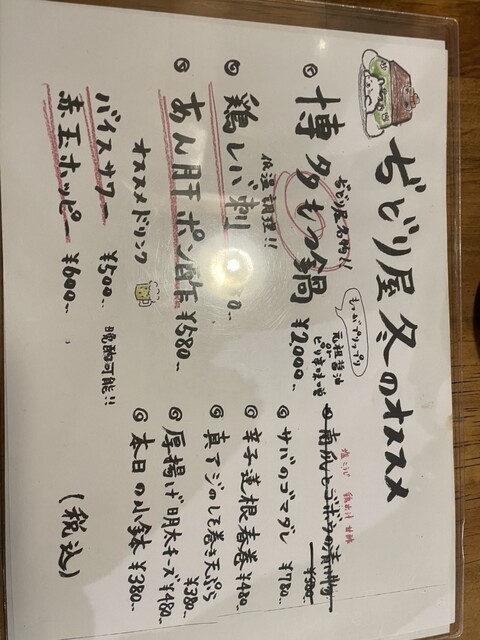 ぢどり屋 冬のオススメ
ぢどり屋名物!!
◎ 博多もつ鍋 ¥2,000..
もつがプリップリ
元祖醤油
ピリ辛味噌
低温調理!!
◎ 鶏レバ刺
◎ あん肝ポン酢 ¥580..
オススメドリンク
バイスサワー ¥500..
晩酌可能!!
赤玉ホッピー ¥600..
¥580
◎ サバのゴマダレ ¥780..
◎ 辛子蓮根春巻 ¥480..
◎ 真アジのしそ巻き天ぷら ¥380..
◎ 厚揚げ明太チーズ ¥480..
◎ 本日の小鉢 ¥380..
(税込)